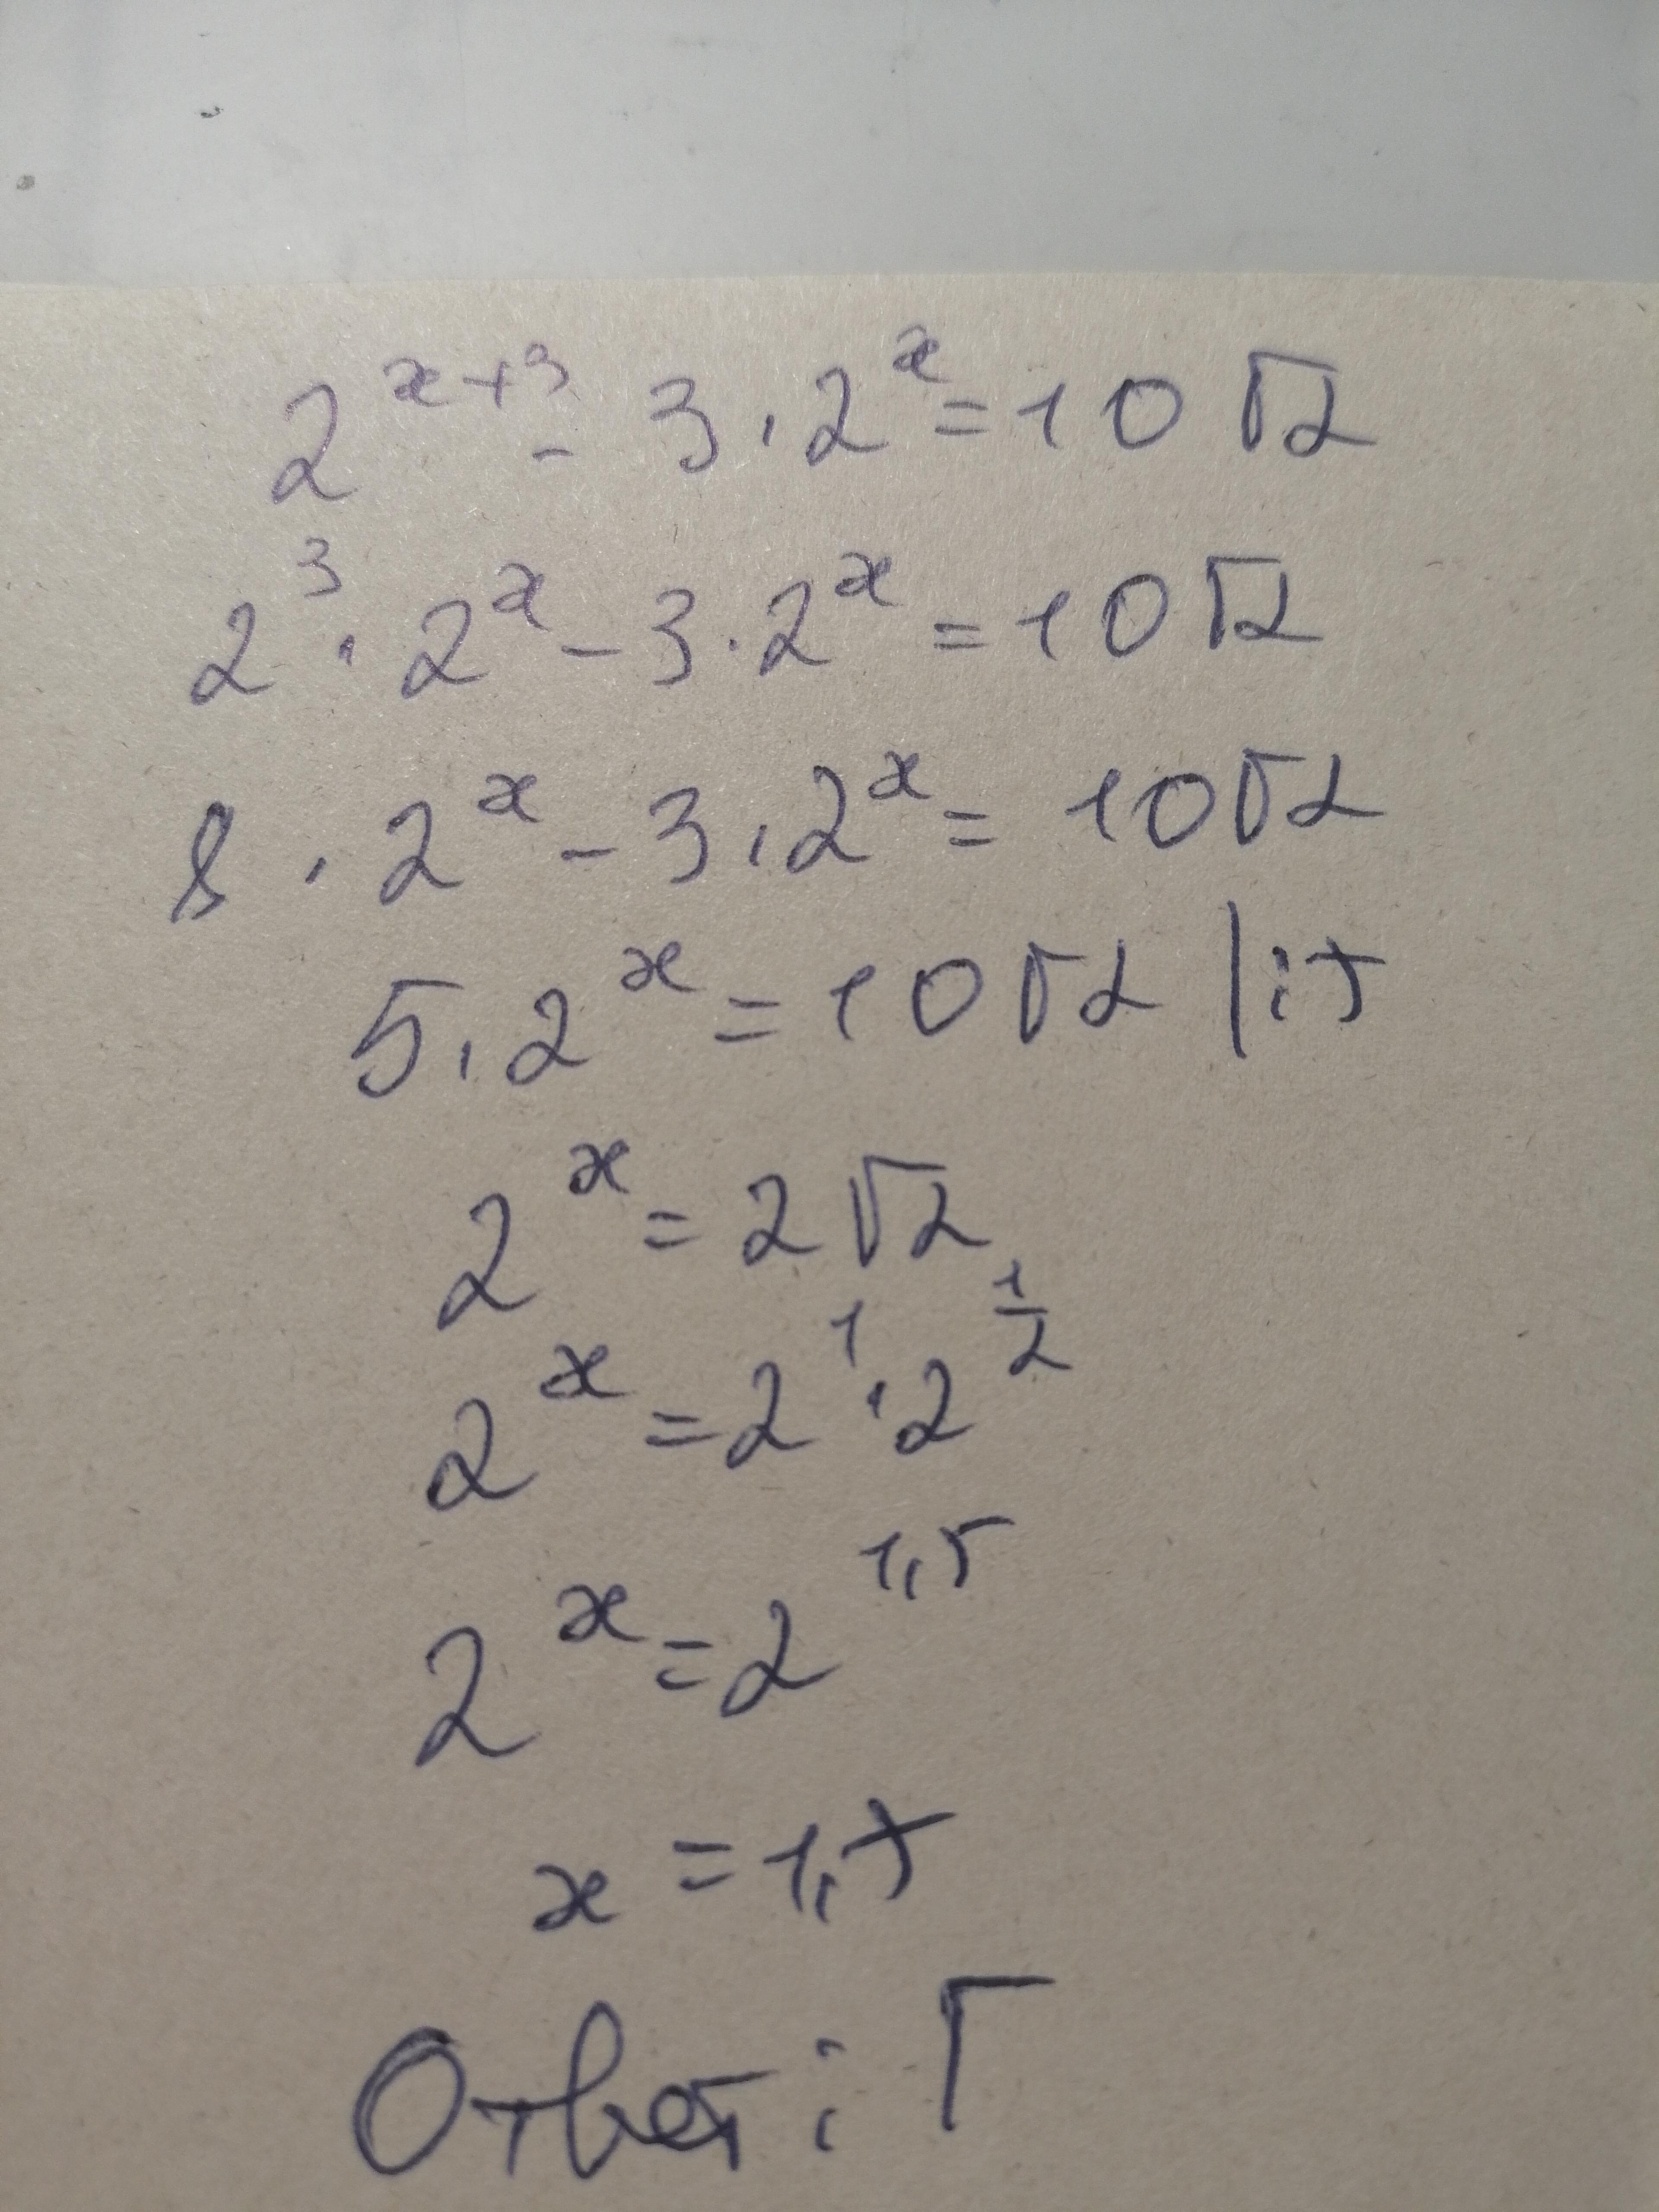 2^(x+3) - 3·2^x = 10√2
2^3 · 2^x - 3·2^x = 10√2
8 · 2^x - 3·2^x = 10√2
5·2^x = 10√2 |:5
2^x = 2√2
2^x = 2^1 · 2^(1/2)
2^x = 2^(1,5)
x = 1,5
Ответ: Г